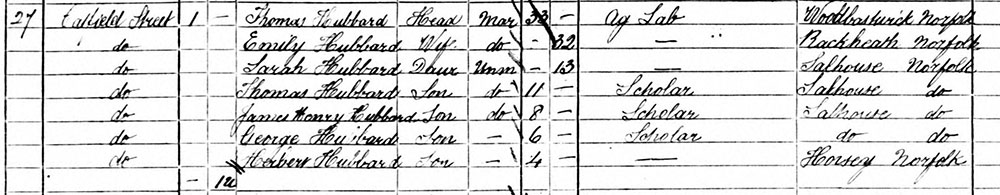 27 Catfield Street 1 - Thomas Hubbard Head Mar 33 - Ag Lab Woodbastwick Norfolk
do Emily Hubbard Wife do - 32 — " Rackheath Norfolk
do Sarah Hubbard Daur Unm - 13 — Salhouse Norfolk
do Thomas Hubbard Son do 11 - Scholar Salhouse do
do James Henry Hubbard Son do 8 - Scholar Salhouse do
do George Hubbard Son - 6 - Scholar do do
do Herbert Hubbard Son - 4 - — Horsey Norfolk
-